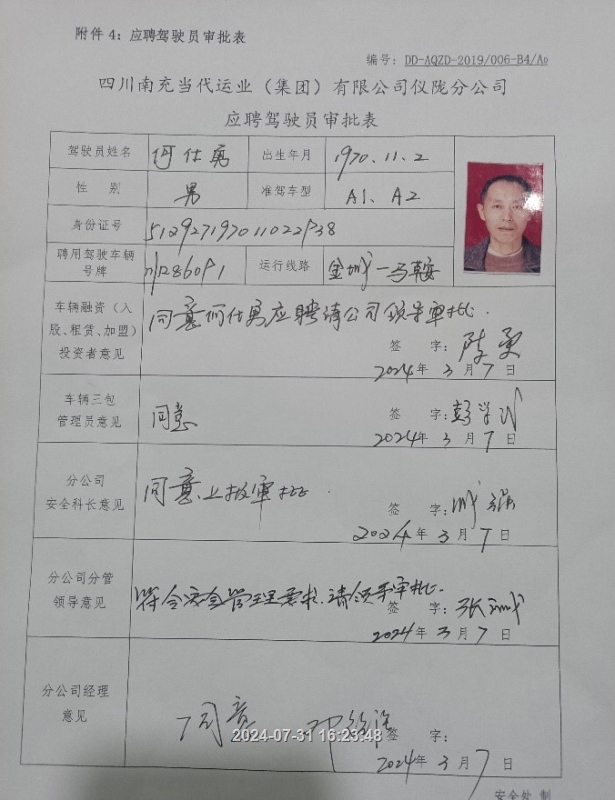 附件 4：应聘驾驶员审批表
编号：DD-AQZD-2019/006-B4/A0
四川南充当代运业（集团）有限公司仪陇分公司
应聘驾驶员审批表
驾驶员姓名 何仕勇 出生年月 1970.11.2
性 别 男 准驾车型 A1、A2
身份证号
聘用驾驶车辆号牌 运行线路 金城—马鞍
车辆融资（入
股、租赁、加盟）
投资者意见
同意何仕勇应聘请公司领导审批.
签 字:
2024年 3 月 7 日
车辆三包
管理员意见
同意
签 字:
2024年 3 月 7 日
分公司
安全科长意见
同意上报审批
签 字:
2024年 3 月 7 日
分公司分管
领导意见
符合安全管理要求.请领导审批.
签 字:
2024年 3 月 7 日
分公司经理
意见
同意
签 字:
2024年 3 月 7 日
2024-07-31 16:23:48
安全处 制